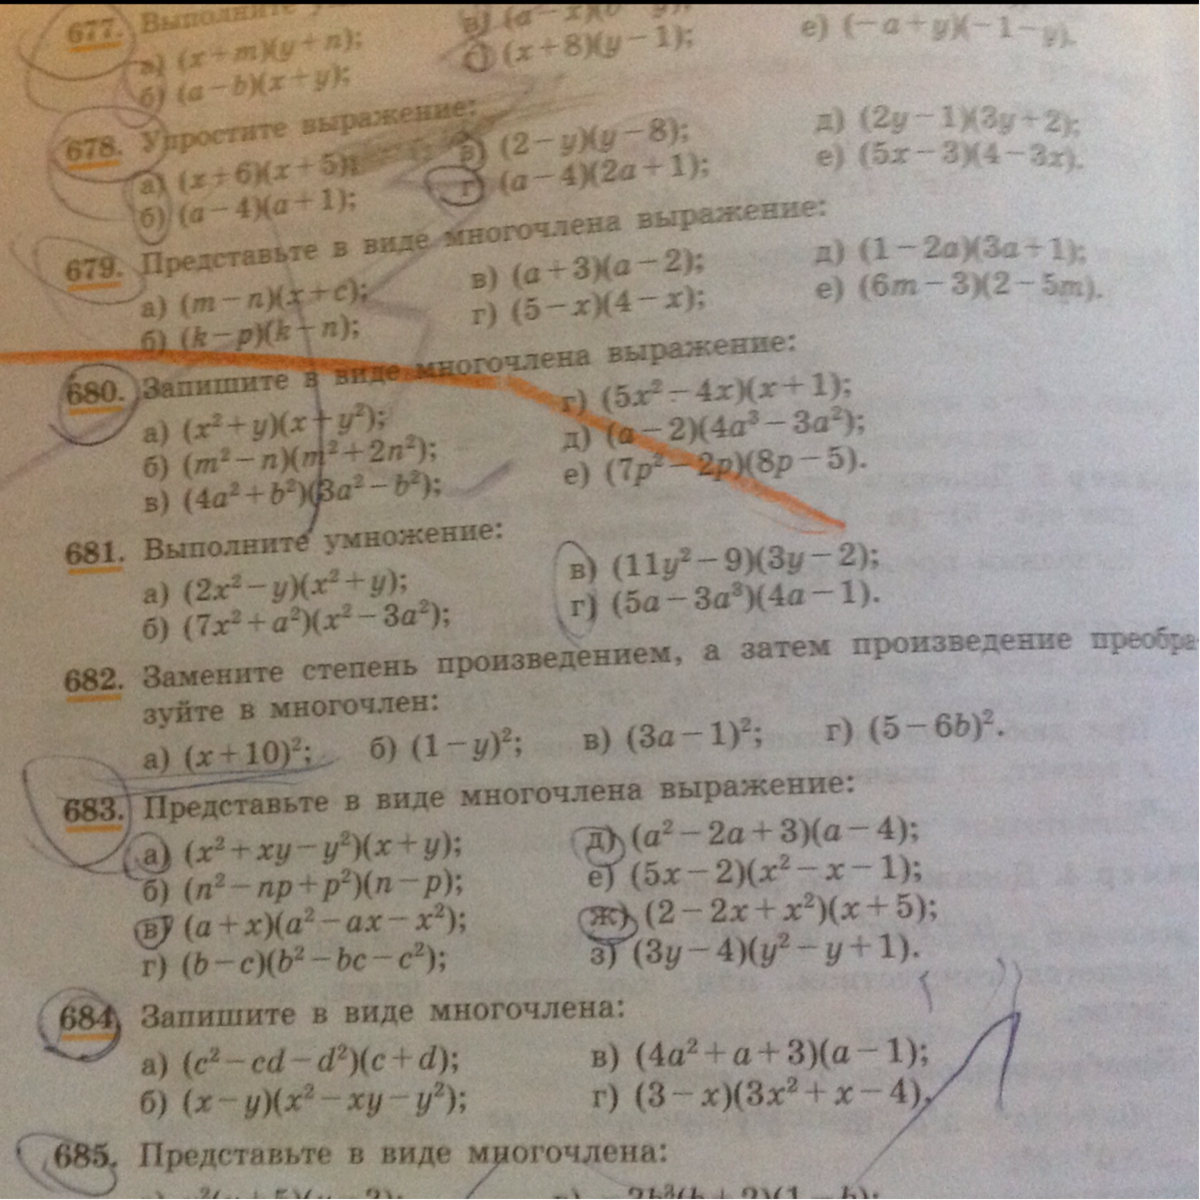 677. Выполните
а) (x+m)(y+n);
б) (a−b)(x+y);
г) (x+8)(y−1);
е) (−a+y)(−1−y).
678. Упростите выражение:
а) (x+6)(x+5);
б) (a−4)(a+1);
в) (2−y)(y−8);
г) (a−4)(2a+1);
д) (2y−1)(3y+2);
е) (5x−3)(4−3x).
679. Представьте в виде многочлена выражение:
а) (m−n)(x+c);
б) (k−p)(k−n);
в) (a+3)(a−2);
г) (5−x)(4−x);
д) (1−2a)(3a+1);
е) (6m−3)(2−5m).
680. Запишите в виде многочлена выражение:
а) (x²+y)(x+y²);
б) (m²−n)(m²+2n²);
в) (4a²+b²)(3a²−b²);
г) (5x²−4x)(x+1);
д) (a−2)(4a³−3a²);
е) (7p²−2p)(8p−5).
681. Выполните умножение:
а) (2x²−y)(x²+y);
б) (7x²+a²)(x²−3a²);
в) (11y²−9)(3y−2);
г) (5a−3a³)(4a−1).
682. Замените степень произведением, а затем произведение преобра
зуйте в многочлен:
а) (x+10)²; б) (1−y)²; в) (3a−1)²; г) (5−6b)².
683. Представьте в виде многочлена выражение:
а) (x²+xy−y²)(x+y);
б) (n²−np+p²)(n−p);
в) (a+x)(a²−ax−x²);
г) (b−c)(b²−bc−c²);
д) (a²−2a+3)(a−4);
е) (5x−2)(x²−x−1);
ж) (2−2x+x²)(x+5);
з) (3y−4)(y²−y+1).
684. Запишите в виде многочлена:
а) (c²−cd−d²)(c+d);
б) (x−y)(x²−xy−y²);
в) (4a²+a+3)(a−1);
г) (3−x)(3x²+x−4).
685. Представьте в виде многочлена: